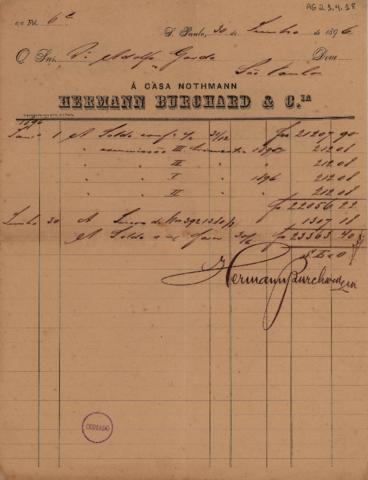 AG 23.4.38
6ª
S. Paulo, 30 de Junho de 1896
O Snr. Dr Adolfo Gordo Deve
São Paulo
Á CASA NOTHMANN
HERMANN BURCHARD & C.IA
1896
1 A Saldo 31/12 21207 90
" commissão III trimestre 1895 212 08
" " IV " " 212 08
" " I " 1896 212 08
" " II " " 212 08
22056 22
Junho 30 A 1307 18
A Saldo 30/6 23363 40
S. E. & O.
Hermann Burchard & Cia